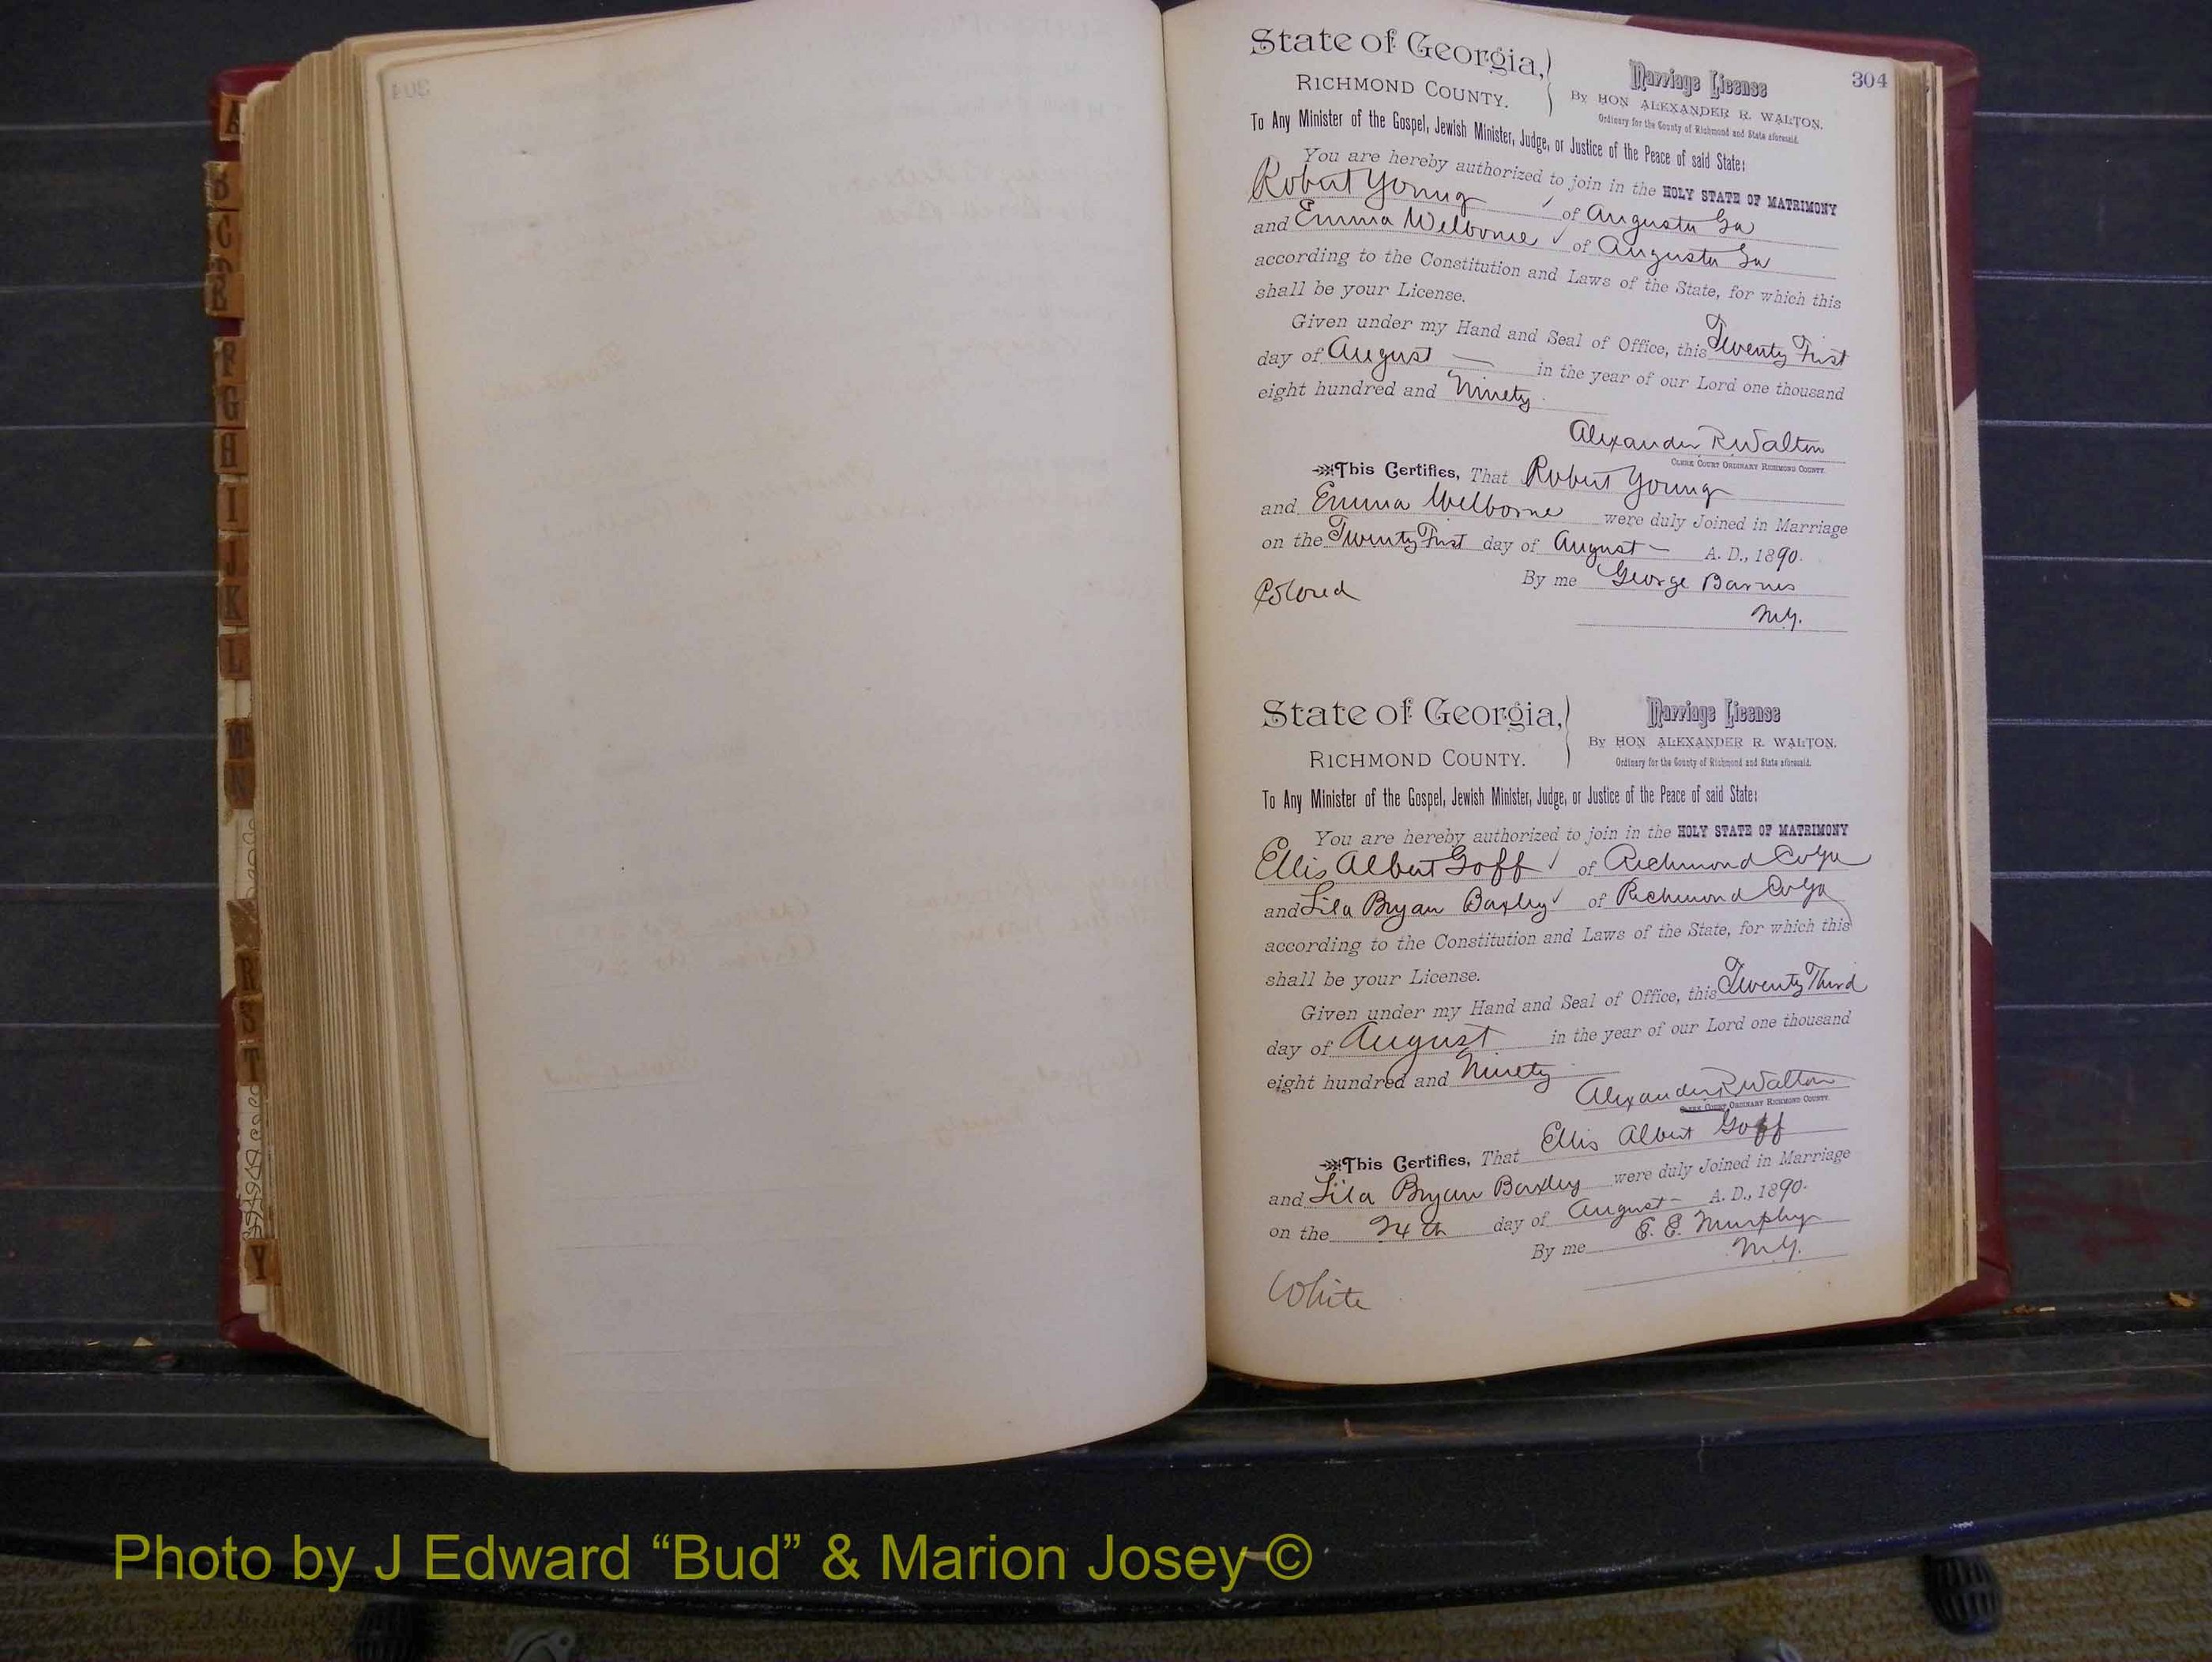 304
State of Georgia,
RICHMOND COUNTY.
Marriage License
By HON ALEXANDER R. WALTON.
Ordinary for the County of Richmond and State aforesaid.
To Any Minister of the Gospel, Jewish Minister, Judge, or Justice of the Peace of said State:
You are hereby authorized to join in the HOLY STATE OF MATRIMONY
Robert Young of Augusta Ga
and Emma Welborne of Augusta Ga
according to the Constitution and Laws of the State, for which this
shall be your License.
Given under my Hand and Seal of Office, this Twenty First
day of August in the year of our Lord one thousand
eight hundred and Ninety
Alexander R Walton
CLERK COURT ORDINARY RICHMOND COUNTY.
This Certifies, That Robert Young
and Emma Welborne were duly Joined in Marriage
on the Twenty First day of August A. D., 1890.
Colored By me George Barnes
M.G.
State of Georgia,
RICHMOND COUNTY.
Marriage License
By HON ALEXANDER R. WALTON.
Ordinary for the County of Richmond and State aforesaid.
To Any Minister of the Gospel, Jewish Minister, Judge, or Justice of the Peace of said State:
You are hereby authorized to join in the HOLY STATE OF MATRIMONY
Ellis Albert Goff of Richmond Co Ga
and Lila Bryan Baxley of Richmond Co Ga
according to the Constitution and Laws of the State, for which this
shall be your License.
Given under my Hand and Seal of Office, this Twenty Third
day of August in the year of our Lord one thousand
eight hundred and Ninety
Alexander R Walton
CLERK COURT ORDINARY RICHMOND COUNTY.
This Certifies, That Ellis Albert Goff
and Lila Bryan Baxley were duly Joined in Marriage
on the 24th day of August A. D., 1890.
By me E. E. Murphy
M.G.
White
A
B
C
D
E
F
G
H
I
J
K
L
M
N
R
S
T
Y
Photo by J Edward “Bud” & Marion Josey ©